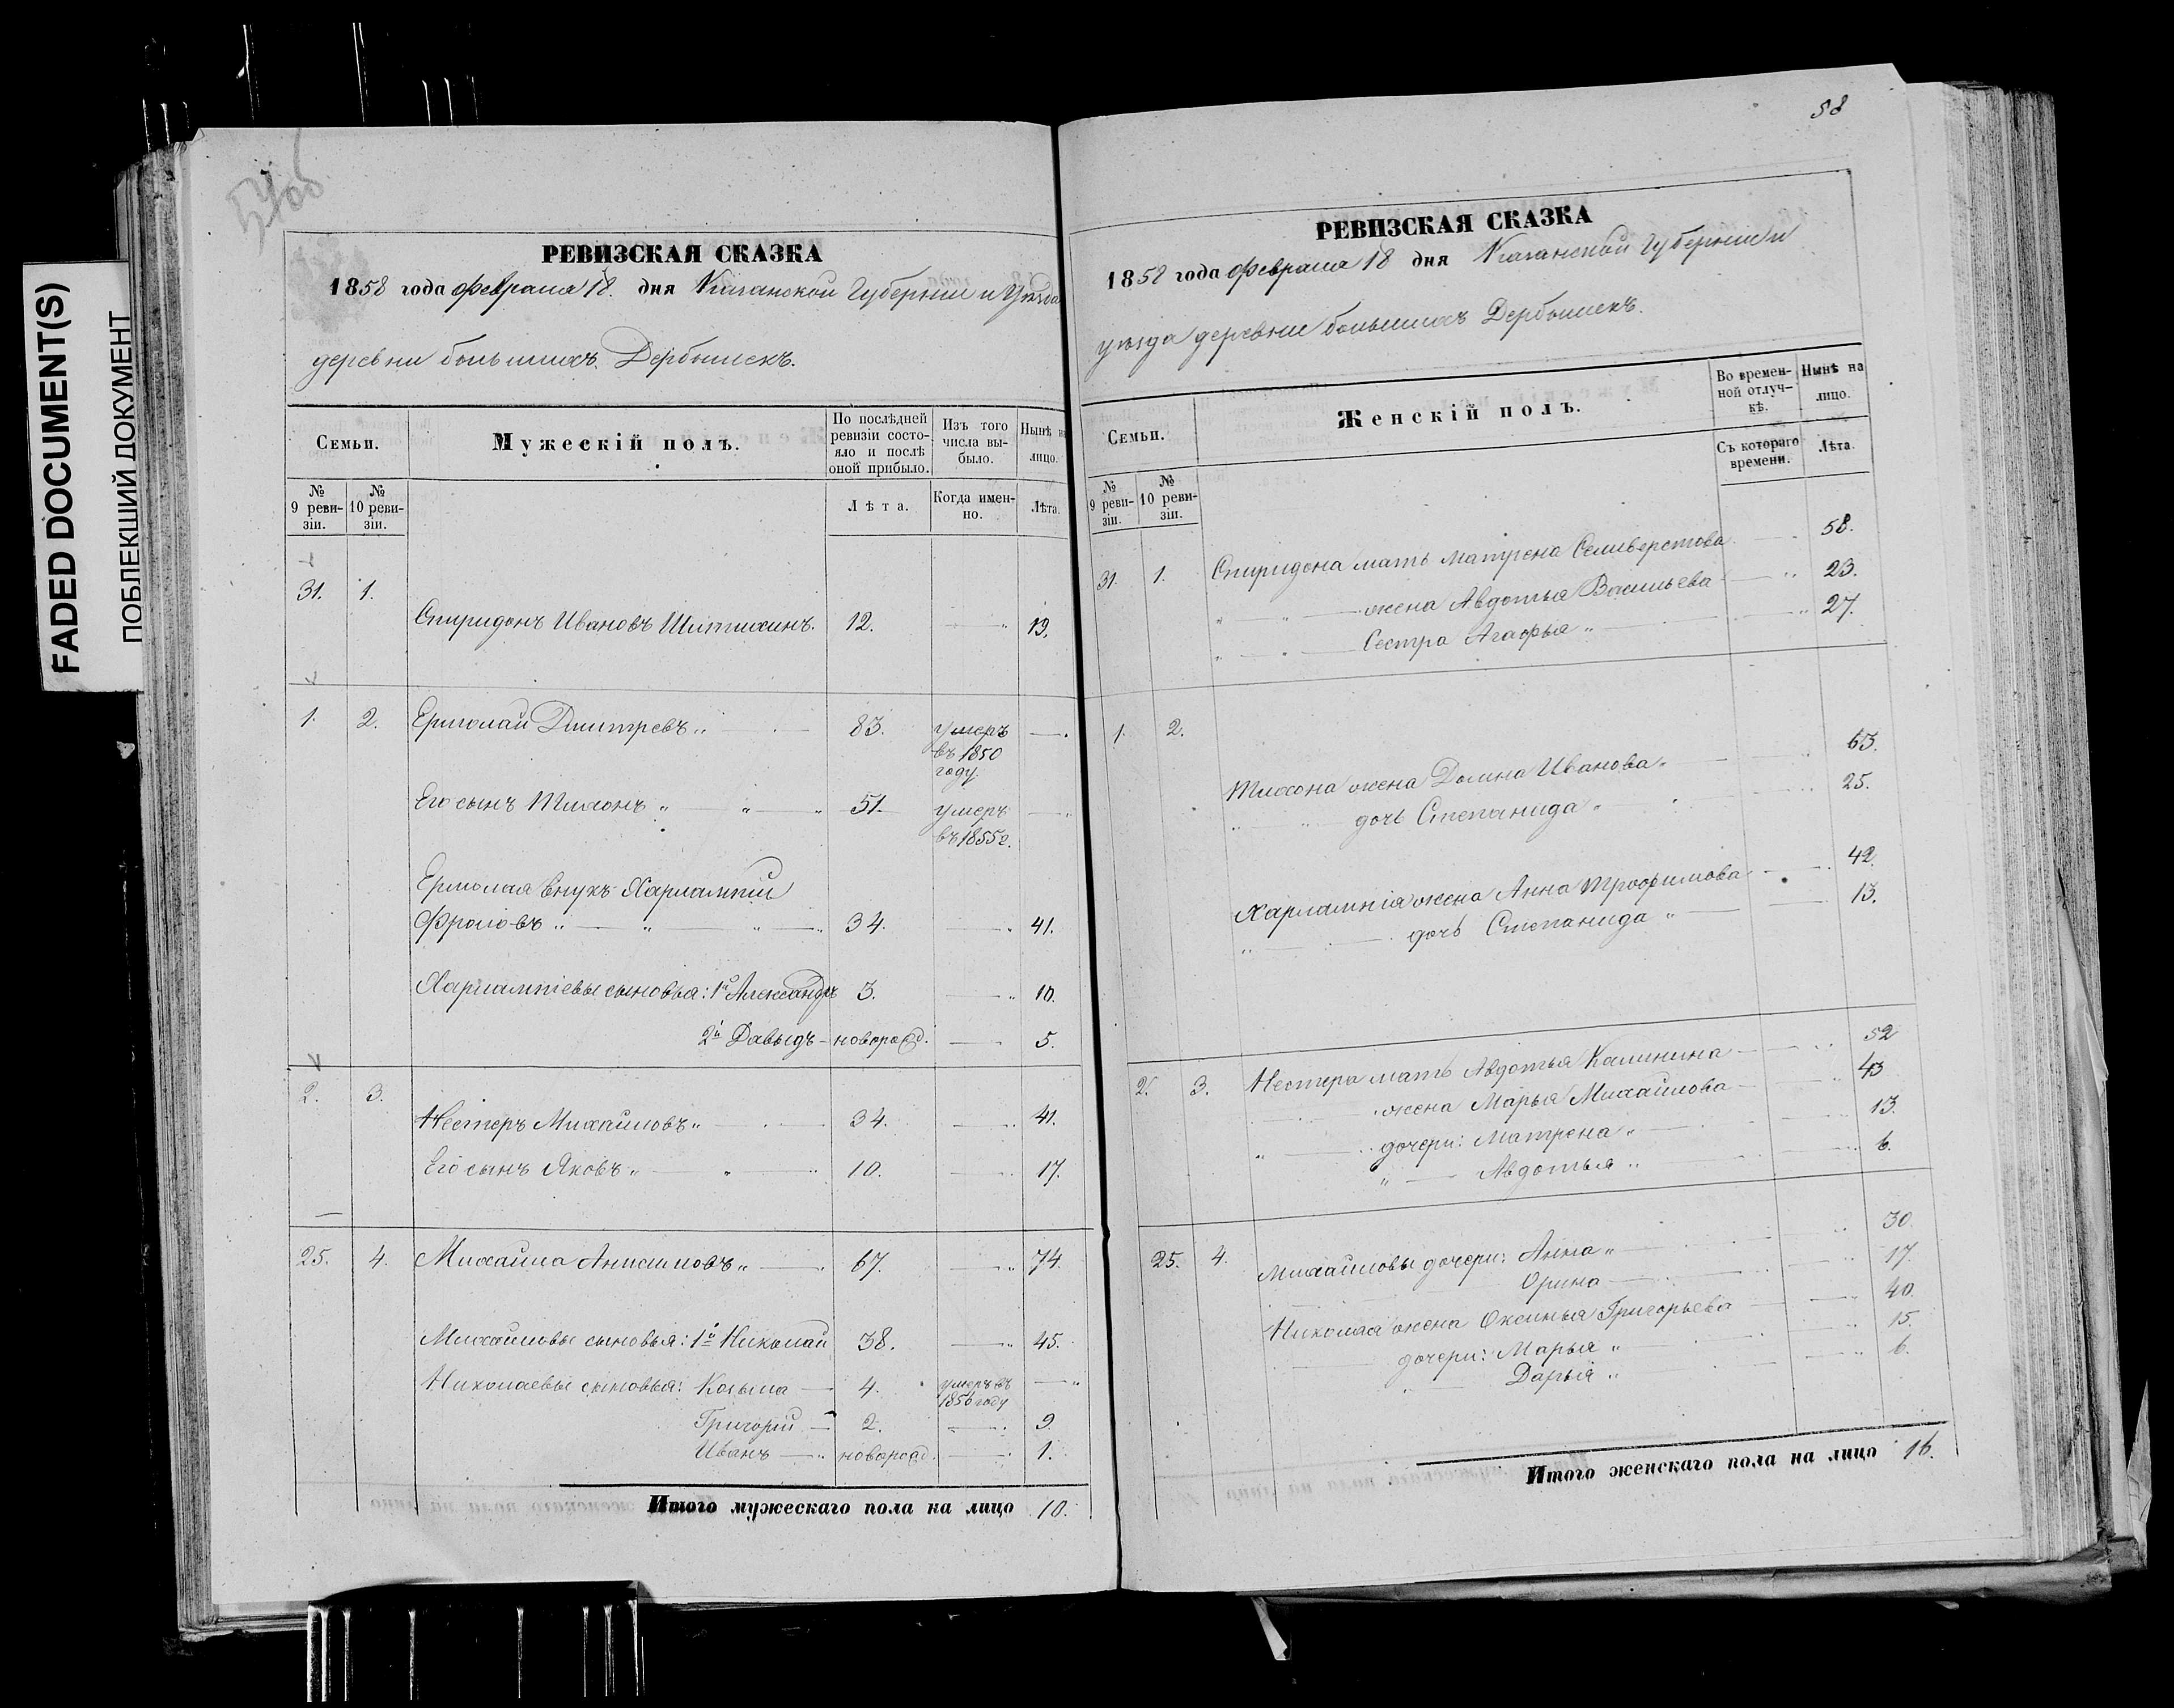 FADED DOCUMENT(S)
ПОБЛЕКШИЙ ДОКУМЕНТ
РЕВИЗСКАЯ СКАЗКА
1858 года февраля 18. дня Казанской Губернии и Уѣзда
деревни большихъ Дербышекъ.
Семьи.
Мужескій полъ.
По послѣдней ревизіи состояло и послѣ оной прибыло.
Изъ того числа выбыло.
Нынѣ на лицо.
№ 9 ревизіи.
№ 10 ревизіи.
Лѣта.
Когда именно.
Лѣта.
31. 1.
Спиридонъ Ивановъ 12. 19.
1. 2. Ермолай Дмитревъ „ 83. умеръ
въ 1850
году.
Его сынъ Тихонъ „ „ „ 51. умеръ
въ 1855 г.
Ермолая внукъ Харлампій
Фроловъ „ „ „ „ 34. 41.
Харлампіевы сыновья: 1й Александръ 3. 10.
2й Давыдъ новорожд. 5.
2. 3.
Нестеръ Михайловъ „ 34. 41.
Его сынъ Яковъ „ „ „ 10. 17.
25. 4. Михайла Анисимовъ „ 67. 74.
Михайловы сыновья: 1й Николай 38. 45.
Николаевы сыновья: Козьма 4. умеръ въ
1856 году
Григорій 2. 9.
Иванъ новорожд. 1.
Итого мужескаго пола на лицо 10.
58
РЕВИЗСКАЯ СКАЗКА
1858 года февраля 18 дня Казанской Губерніи и
уѣзда деревни большихъ Дербышекъ.
Семьи.
Женскій полъ.
Во временной отлучкѣ.
Нынѣ на лицо.
№ 9 ревизіи.
№ 10 ревизіи.
Съ котораго времени.
Лѣта.
31. 1. Спиридона мать Матрена Селиверстова 58.
„ „ жена Авдотья Васильева „ 23.
„ „ Сестра Агафья „ „ 27.
1. 2.
Тихона жена Домна Иванова „ „ 63.
„ „ дочь Степанида „ 25.
Харлампія жена Анна Трофимова 42.
„ дочь Степанида „ 13.
2. 3. Нестера мать Авдотья Калинина 52
жена Марья Михайлова 43
„ дочери: Матрена „ 13.
„ Авдотья „ 6.
25. 4. Михайловы дочери: Анна „ 30.
Орина 17.
Николая жена Оксинья Григорьева 40.
дочери: Марья „ 15.
Дарья „ 6.
Итого женскаго пола на лицо 16.